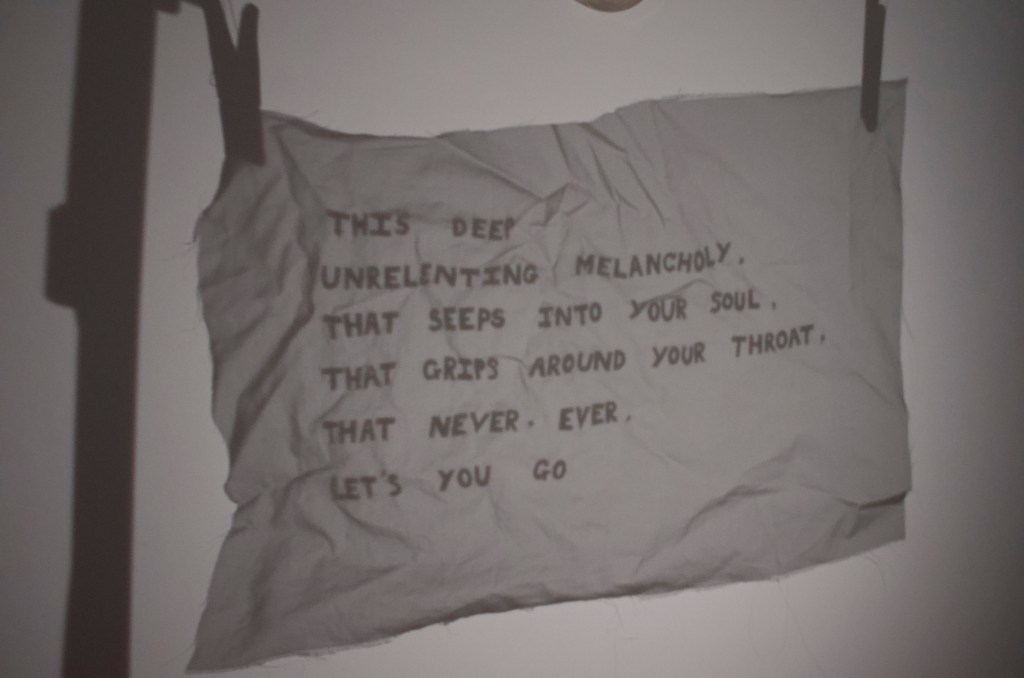 THIS DEEP
UNRELENTING MELANCHOLY.
THAT SEEPS INTO YOUR SOUL.
THAT GRIPS AROUND YOUR THROAT.
THAT NEVER. EVER.
LET'S YOU GO